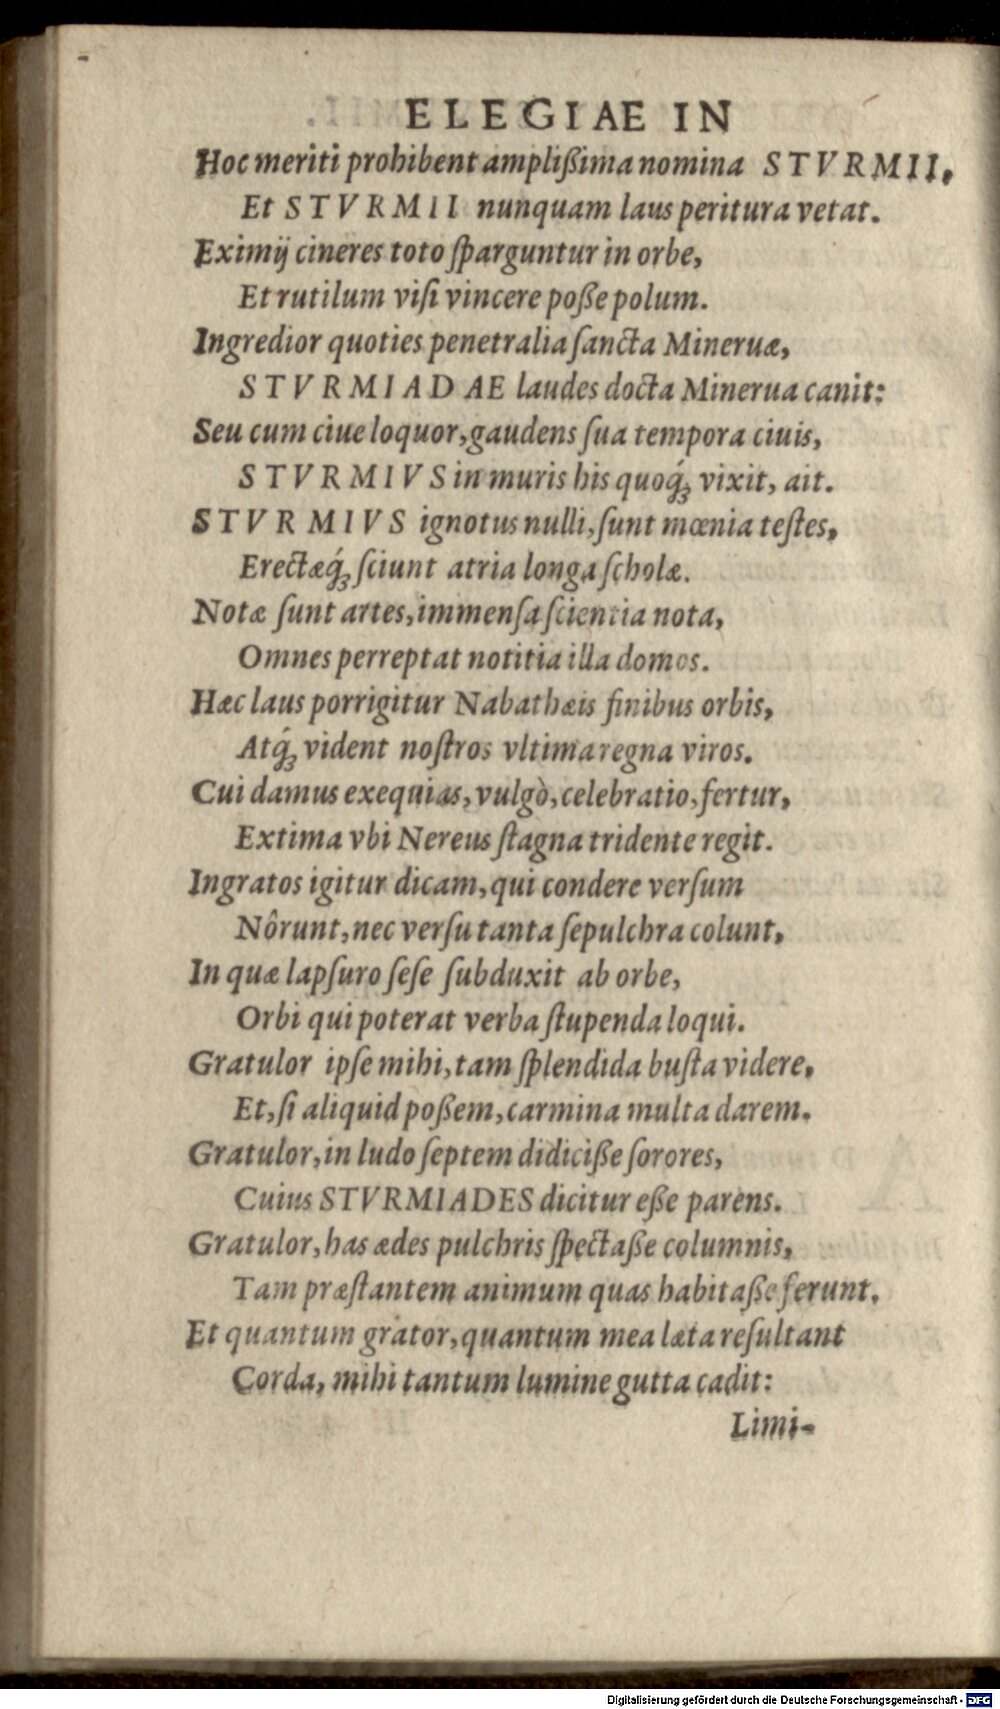 ELEGIAE IN
Hoc meriti prohibent ampliſſima nomina STVRMII,
Et STVRMII nunquam laus peritura vetat.
Eximij cineres toto ſparguntur in orbe,
Et rutilum viſi vincere poſſe polum.
Ingredior quoties penetralia ſancta Mineruæ,
STVRMIADAE laudes docta Minerua canit:
Seu cum ciue loquor, gaudens ſua tempora ciuis,
STVRMIVS in muris his quoq́ꝫ vixit, ait.
STVRMIVS ignotus nulli, ſunt mœnia teſtes,
Erectæq́ꝫ ſciunt atria longa ſcholæ.
Notæ ſunt artes, immenſa ſcientia nota,
Omnes perreptat notitia illa domos.
Hæc laus porrigitur Nabathæis finibus orbis,
Atq́ꝫ vident noſtros vltima regna viros.
Cui damus exequias, vulgò, celebratio, fertur,
Extima vbi Nereus ſtagna tridente regit.
Ingratos igitur dicam, qui condere verſum
Nôrunt, nec verſu tanta ſepulchra colunt,
In quæ lapſuro ſeſe ſubduxit ab orbe,
Orbi qui poterat verba ſtupenda loqui.
Gratulor ipſe mihi, tam ſplendida buſta videre,
Et, ſi aliquid poſſem, carmina multa darem.
Gratulor, in ludo ſeptem didiciſſe ſorores,
Cuius STVRMIADES dicitur eſſe parens.
Gratulor, has ædes pulchris ſpectaſſe columnis,
Tam præſtantem animum quas habitaſſe ferunt.
Et quantum grator, quantum mea læta reſultant
Corda, mihi tantum lumine gutta cadit:
Limi-
Digitalisierung gefördert durch die Deutsche Forschungsgemeinschaft - DFG